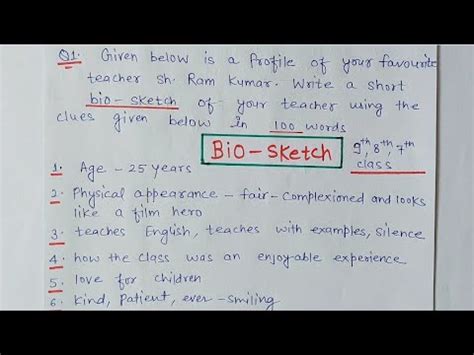 Q1. Given below is a profile of your favourite
teacher sh. Ram Kumar. Write a short
bio-sketch of your teacher using the
clues given below in 100 words
BiO-Sketch
9th, 8th, 7th
class
1. Age - 25 years
2. Physical appearance - fair-complexioned and looks
like a film hero
3. teaches English, teaches with examples, silence
4. how the class was an enjoyable experience
5. love for children
6. kind, Patient, ever-smiling